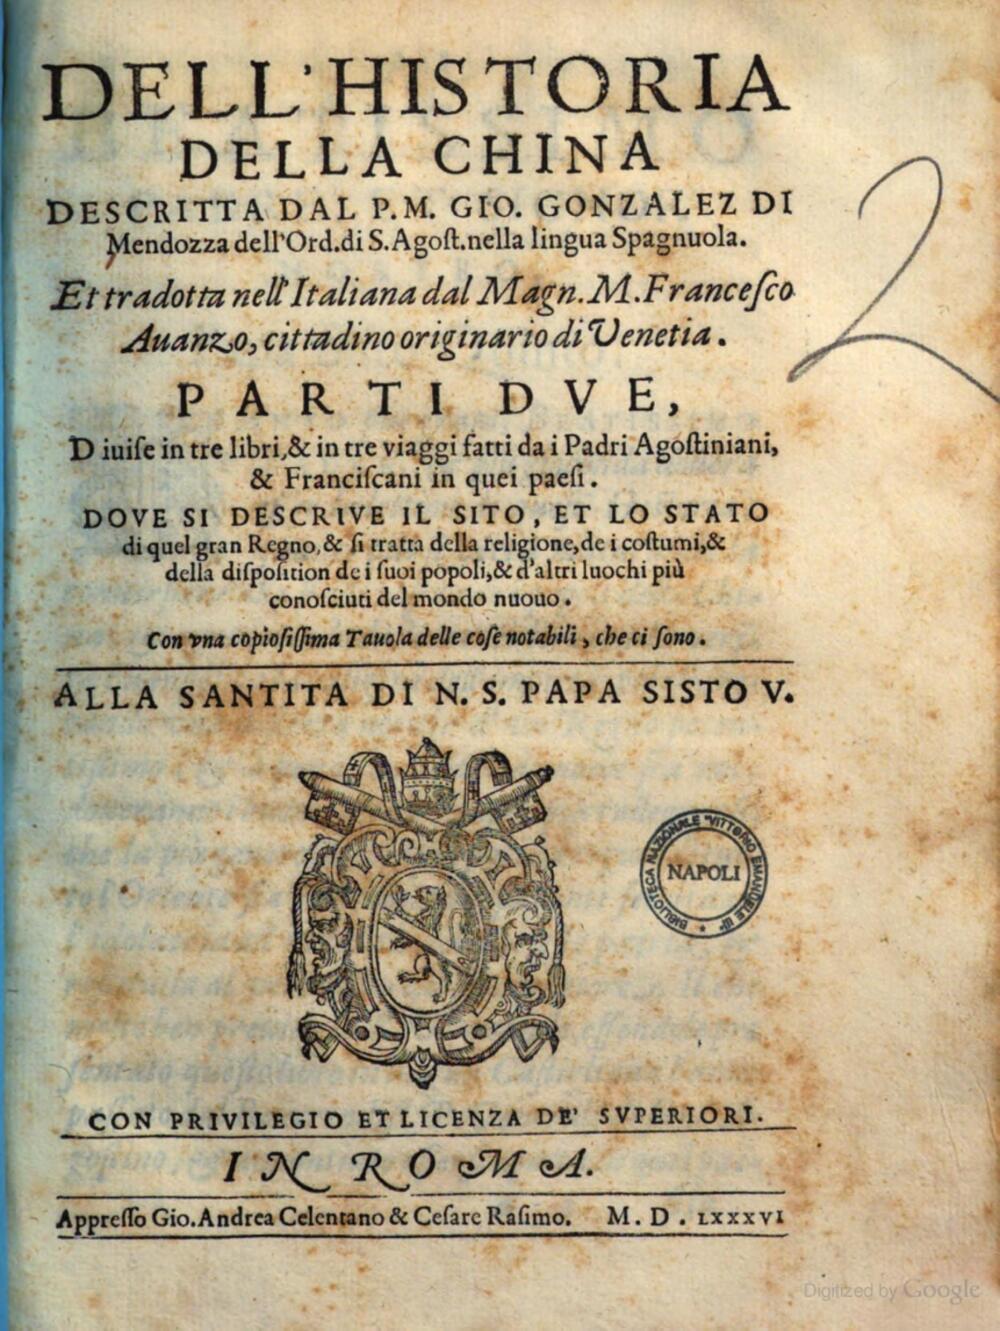 DELL'HISTORIA
DELLA CHINA
DESCRITTA DAL P.M. GIO. GONZALEZ DI
Mendozza dell'Ord.di S.Agoſt.nella lingua Spagnuola.
Et tradotta nell'Italiana dal Magn.M.Franceſco
Auanzo, cittadino originario di Venetia.
PARTI DVE,
Diuiſe in tre libri,& in tre viaggi fatti da i Padri Agoſtiniani,
& Franciſcani in quei paeſi.
DOVE SI DESCRIVE IL SITO, ET LO STATO
di quel gran Regno,& ſi tratta della religione,de i coſtumi,&
della diſpoſition de i ſuoi popoli,& d'altri luochi più
conoſciuti del mondo nuouo.
Con vna copioſiſſima Tauola delle coſe notabili, che ci ſono.
ALLA SANTITA DI N. S. PAPA SISTO V.
BIBLIOTECA NAZIONALE "VITTORIO EMANUELE III"
NAPOLI
CON PRIVILEGIO ET LICENZA DE' SVPERIORI.
IN ROMA.
Appreſſo Gio.Andrea Celentano & Ceſare Raſimo. M. D. LXXXVI
2
Digitized by Google